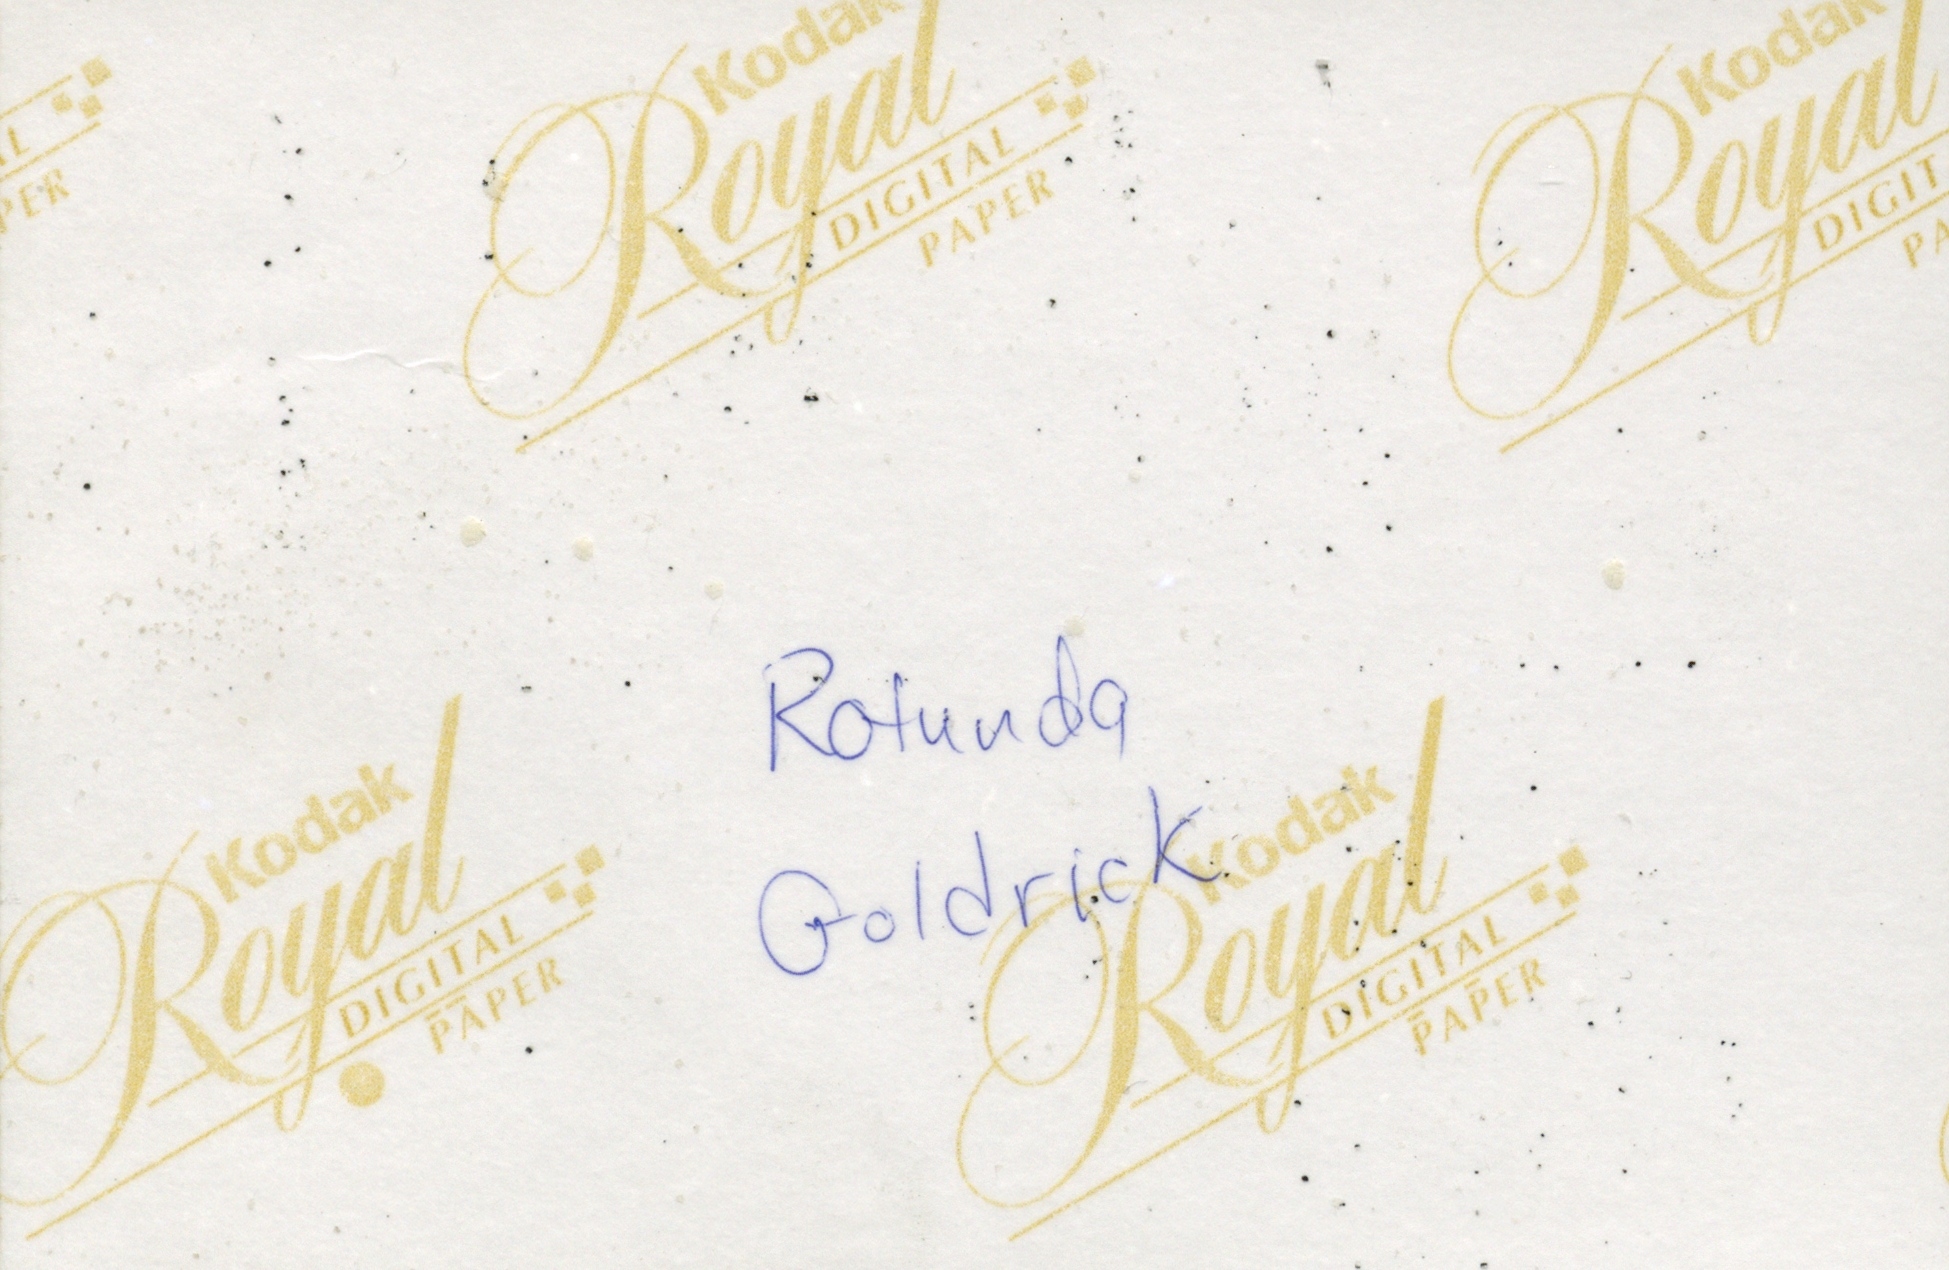 Kodak
Royal
DIGITAL
PAPER
Kodak
Royal
DIGIT
PA
AL
PER
Rotunda
Goldrick
Kodak
Royal
DIGITAL
PAPER
Kodak
Royal
DIGITAL
PAPER